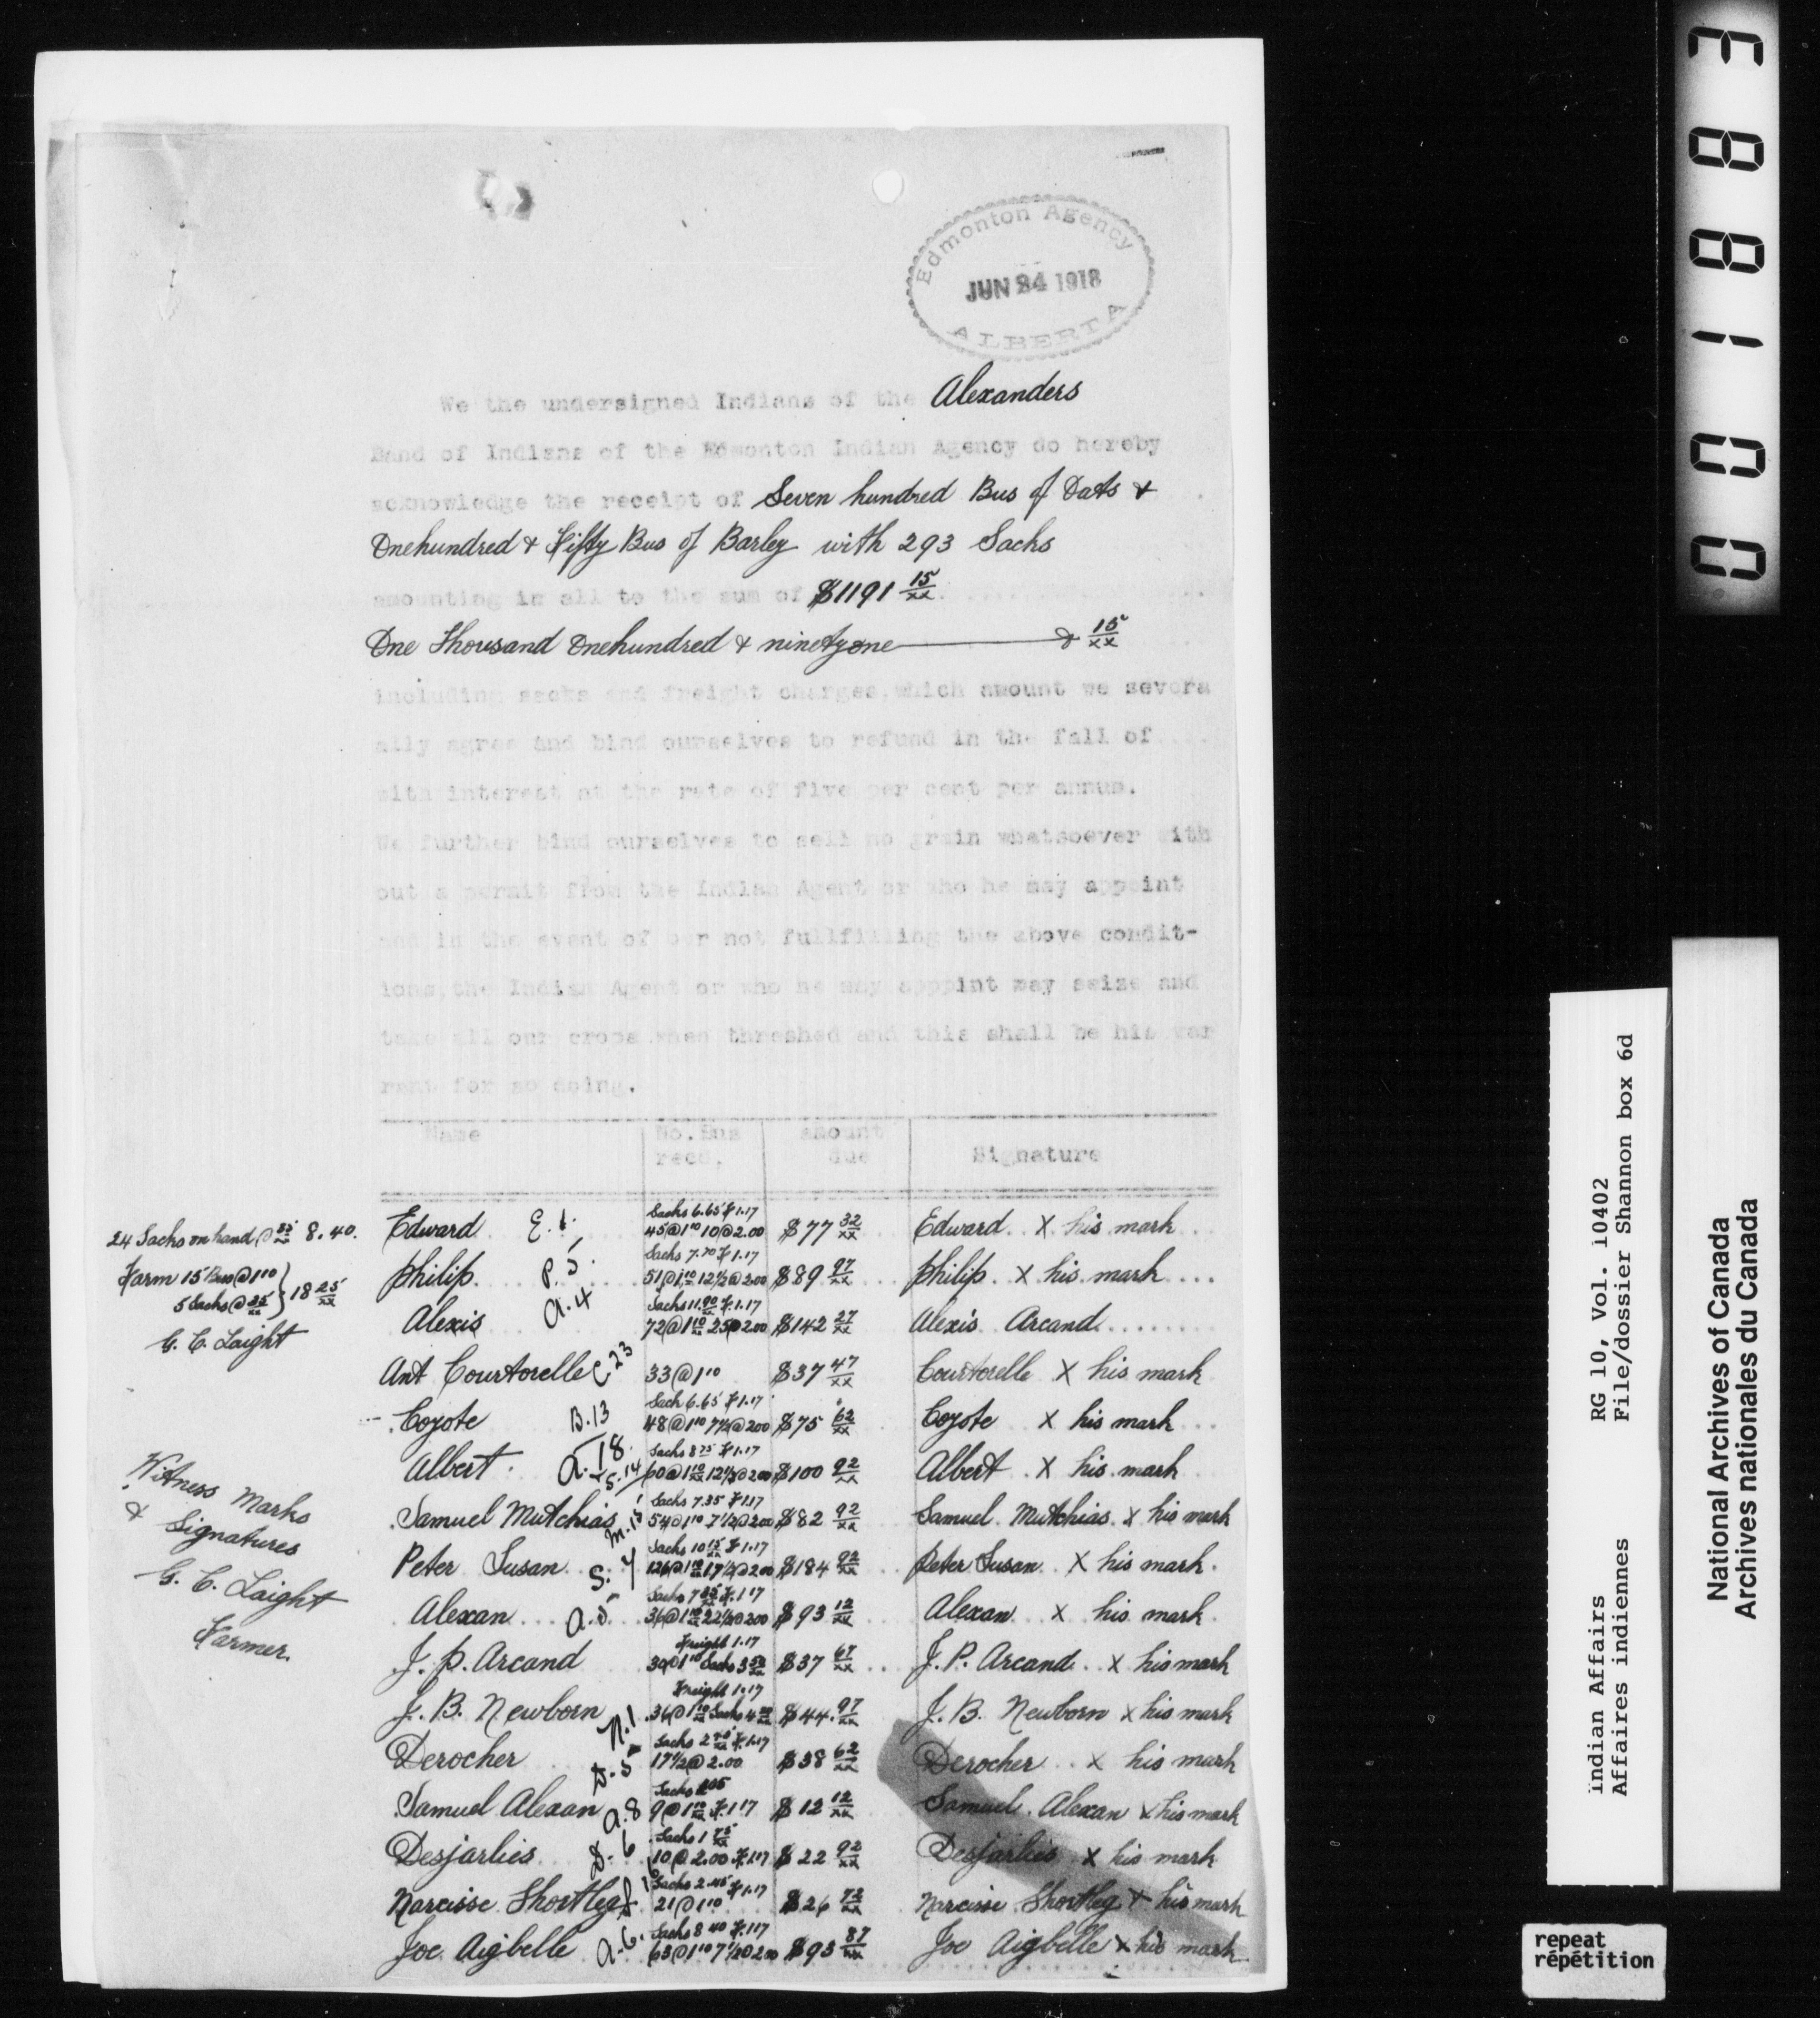 Edmonton Agency
JUN 24 1918
ALBERTA
We the undersigned Indians of the Alexanders
Band of Indians of the Edmonton Indian Agency do hereby
acknowledge the receipt of Seven hundred Bus of Oats &
Onehundred & Fifty Bus of Barley with 293 Sacks
amounting in all to the sum of $1191 15/xx
One Thousand Onehundred & ninetyone & 15/xx
including sacks and freight charges, which amount we severa
ally agree and bind ourselves to refund in the fall of ....
with interest at the rate of five per cent per annum.
We further bind ourselves to sell no grain whatsoever with
out a permit from the Indian Agent or who he may appoint
and in the event of our not fullfilling the above condit-
ions, the Indian Agent or who he may apppint may seize and
take all our crops when threshed and this shall be his war
rant for so doing.
Name No. Bus recd. amount due Signature
24 Sacks on hand @ 35/xx 8.40.
Farm 15 Bus @ 1 10 } 18 25/xx
5 Sacks @ 35/xx
G. C. Laight
Witness Marks
& Signatures
G. C. Laight
Farmer.
Sacks 6.65 F 1.17
Edward E. 1. 45@1 10 10@2.00 $77 32/xx Edward X his mark
Sacks 7.70 F 1.17
Philip. P. 5. 51@1 10 12½@2.00 $89 97/xx Philip. X his mark
Sacks 11.90 F 1.17
Alexis A. 4 72@1 10/xx 25@2.00 $142 27/xx Alexis Arcand
Ant Courtorelle C 23 33@1 10 $37 47/xx Courtorelle X his mark
Sack 6.65 F 1.17
Coyote B. 13 48@1 10 7½@2 00 $75 62/xx Coyote X his mark
Sacks 8 75 F 1.17
Albert A. 18. S. 14 60@1 10/xx 12½@2 00 $100 92/xx Albert X his mark
Sacks 7.35 F 1.17
Samuel Mutchias M. 13 54@1 10 7½@2 00 $82 92/xx Samuel Mutchias X his mark
Sacks 10 15/xx F 1.17
Peter Susan S. 4 126@1 10 17½@2 00 $184 92/xx Peter Susan X his mark.
Sacks 7 35/xx F. 1 17
Alexan A. 5 36@1 10/xx 22½@2 00 $93 12/xx Alexan X his mark.
Freight 1.17
J. P. Arcand 30@1 10 Sacks 3 50/xx $37 67/xx J. P. Arcand X his mark
Freight 1.17
J. B. Newborn N. 1 36@1 10/xx Sacks 4 20/xx $44. 97/xx J. B. Newborn X his mark
Sacks 2 45 F 1.17
Derocher D. 5 17½@2.00 $38 62/xx Derocher X his mark
Sacks 1 05
Samuel Alexan A. 8 9@1 10/xx F. 1 17 $12 12/xx Samuel. Alexan X his mark
Sacks 1 75/xx
Desjarlies D. 6 10@2.00 F. 1 17 $22 92/xx Desjarlies X his mark
Sacks 2.45 F 1.17
Narcisse Shortleg 21@1 10 $26 72/xx Narcisse Shortleg X his mark
Sacks 8 40 F. 1 17
Joe Aigbelle A. 6. 63@1 10 7½@2 00 $93 87/xx Joe Aigbelle X his mark
001883
Indian Affairs RG 10, Vol. 10402
Affaires indiennes File/dossier Shannon box 6d
National Archives of Canada
Archives nationales du Canada
repeat
répétition